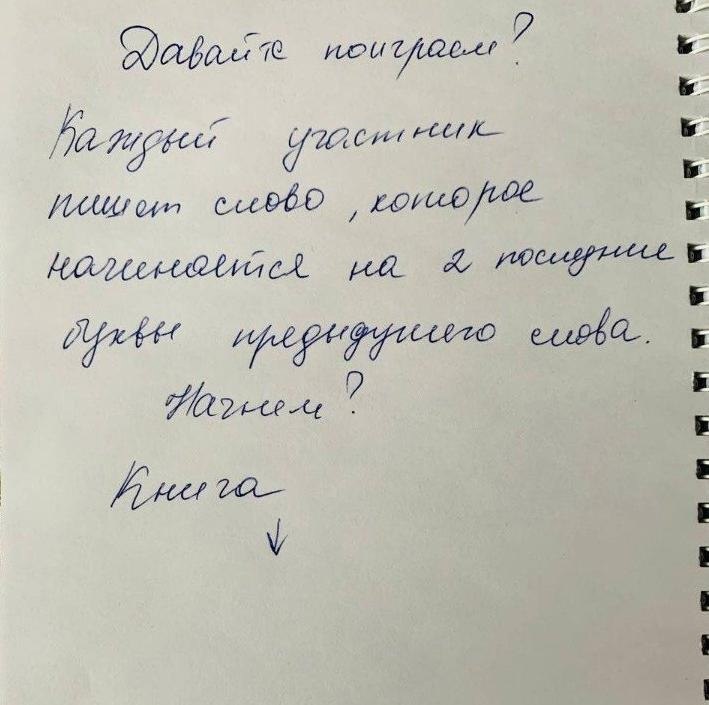 Давайте поиграем?
Каждый участник
пишет слово, которое
начинается на 2 последние
буквы предыдущего слова.
Начнем?
Книга
↓